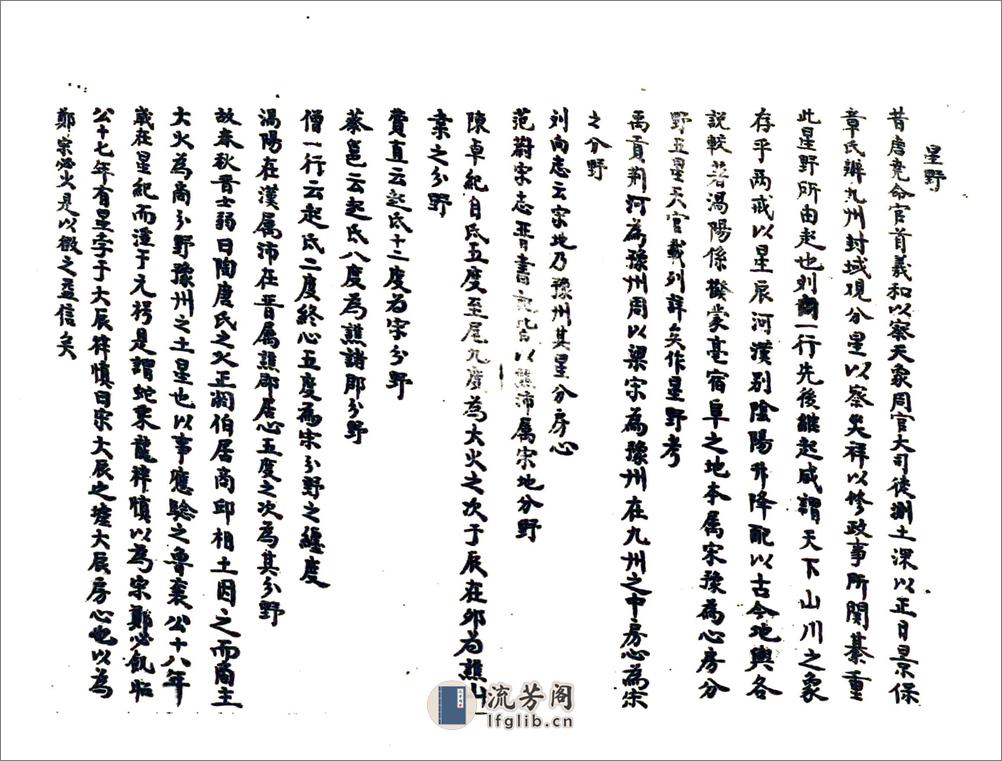 星野
昔唐堯命官首羲和以察天象周官大司徒測土深以正日景保
章氏辨九州封域現分星以察災祥以修政事所関綦重
此星野所由起也刘向一行先後繼起咸謂天下山川之象
存乎兩戒以星辰河漢别陰陽升降配以古今地輿各
説較著渦陽係蒙亳宿阜之地本属宋豫為心房分
野五星天官載列詳矣作星野考
禹貢荆河為豫州周以梁宋為豫州在九州之中房心為宋
之分野
刘向志云宋地乃豫州其星分房心
范蔚宗志晋書以譙沛属宋地分野
陳卓紀自氐五度至尾九度為大火之次于辰在卯為譙
之分野
費直云起氐十一度为宋分野
蔡邕云起氐八度為譙諸郡分野
僧一行云起氐二度終心五度為宋分野之纏度
渦陽在漢属沛在晋属譙郡居心五度之次為其分野
故春秋晋士弱曰陶唐氏之火正閼伯居商邱相土因之而商主
大火為商分野豫州之土星也以事應驗之魯襄公十八年
歲在星紀而淫于元枵是謂蛇乘龍梓慎以為宋鄭必飢昭
公十七年有星孛于大辰梓慎曰宋大辰之墟大辰房心也以為
鄭宗必火是以徵之益信矣
流芳阁
lfglib.cn